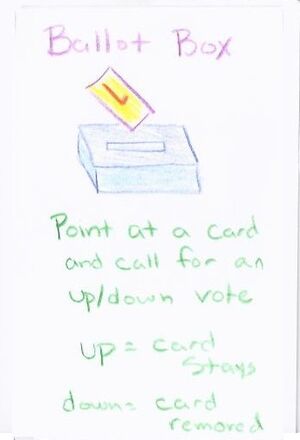 Ballot Box
Point at a card
and call for an
up/down vote
up = card
stays
down= card
removed